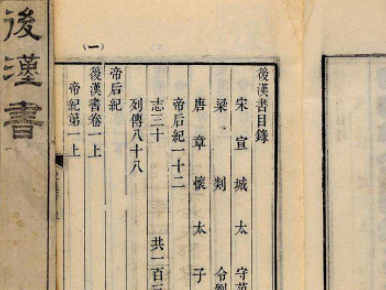 後漢書
後漢書目錄
宋宣城太守范
梁剡令劉
唐章懷太子
帝后紀一十二
志三十
共一百三
列傳八十八
帝后紀
後漢書卷一上
帝紀第一上
(一)